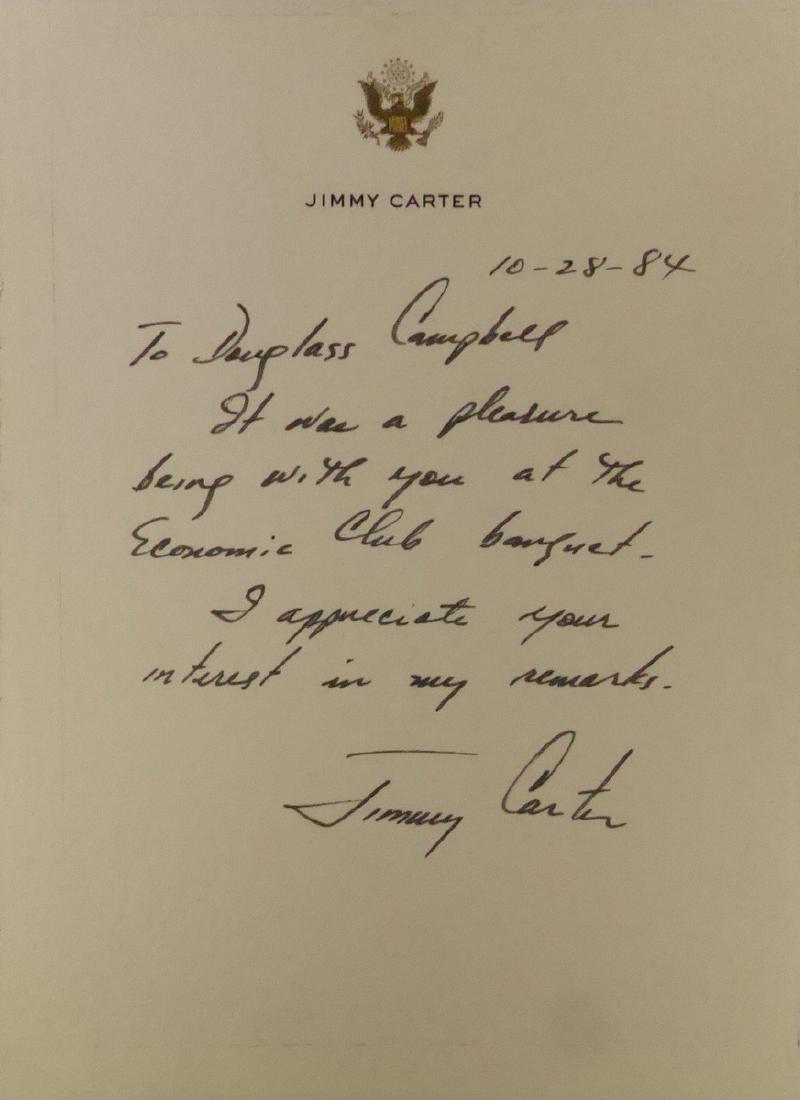 JIMMY CARTER
10-28-84
To Douglass Campbell
It was a pleasure
being with you at the
Economic Club banquet.
I appreciate your
interest in my remarks.
Jimmy Carter